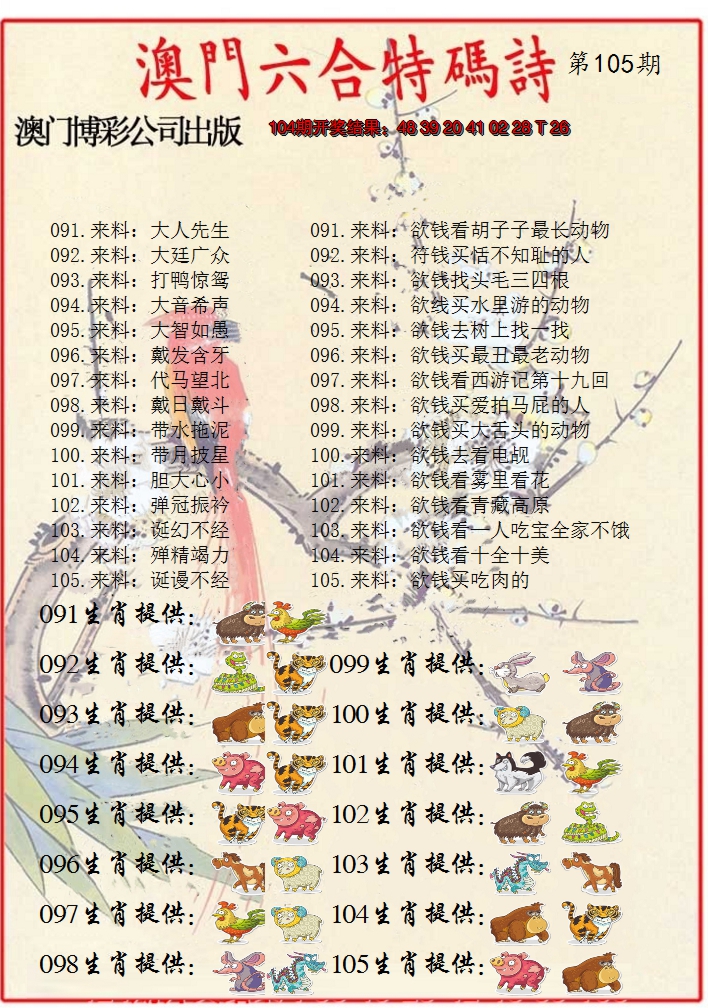 澳門六合特碼詩 第105期
澳门博彩公司出版 104期开奖结果：48 39 20 41 02 28 T 26
091.来料：大人先生 091.来料：欲钱看胡子子最长动物
092.来料：大廷广众 092.来料：符钱买恬不知耻的人
093.来料：打鸭惊鸳 093.来料：欲钱找头毛三四根
094.来料：大音希声 094.来料：欲线买水里游的动物
095.来料：大智如愚 095.来料：欲钱去树上找一找
096.来料：戴发含牙 096.来料：欲钱买最丑最老动物
097.来料：代马望北 097.来料：欲钱看西游记第十九回
098.来料：戴日戴斗 098.来料：欲钱买爱拍马屁的人
099.来料：带水拖泥 099.来料：欲钱买大舌头的动物
100.来料：带月披星 100.来料：欲钱去看电觇
101.来料：胆大心小 101.来料：欲钱看雾里看花
102.来料：弹冠振衿 102.来料：欲钱看青藏高原
103.来料：诞幻不经 103.来料：欲钱看一人吃宝全家不饿
104.来料：殚精竭力 104.来料：欲钱看十全十美
105.来料：诞谩不经 105.来料：欲钱买吃肉的
091生肖提供：
092生肖提供： 099生肖提供：
093生肖提供： 100生肖提供：
094生肖提供： 101生肖提供：
095生肖提供： 102生肖提供：
096生肖提供： 103生肖提供：
097生肖提供： 104生肖提供：
098生肖提供： 105生肖提供：